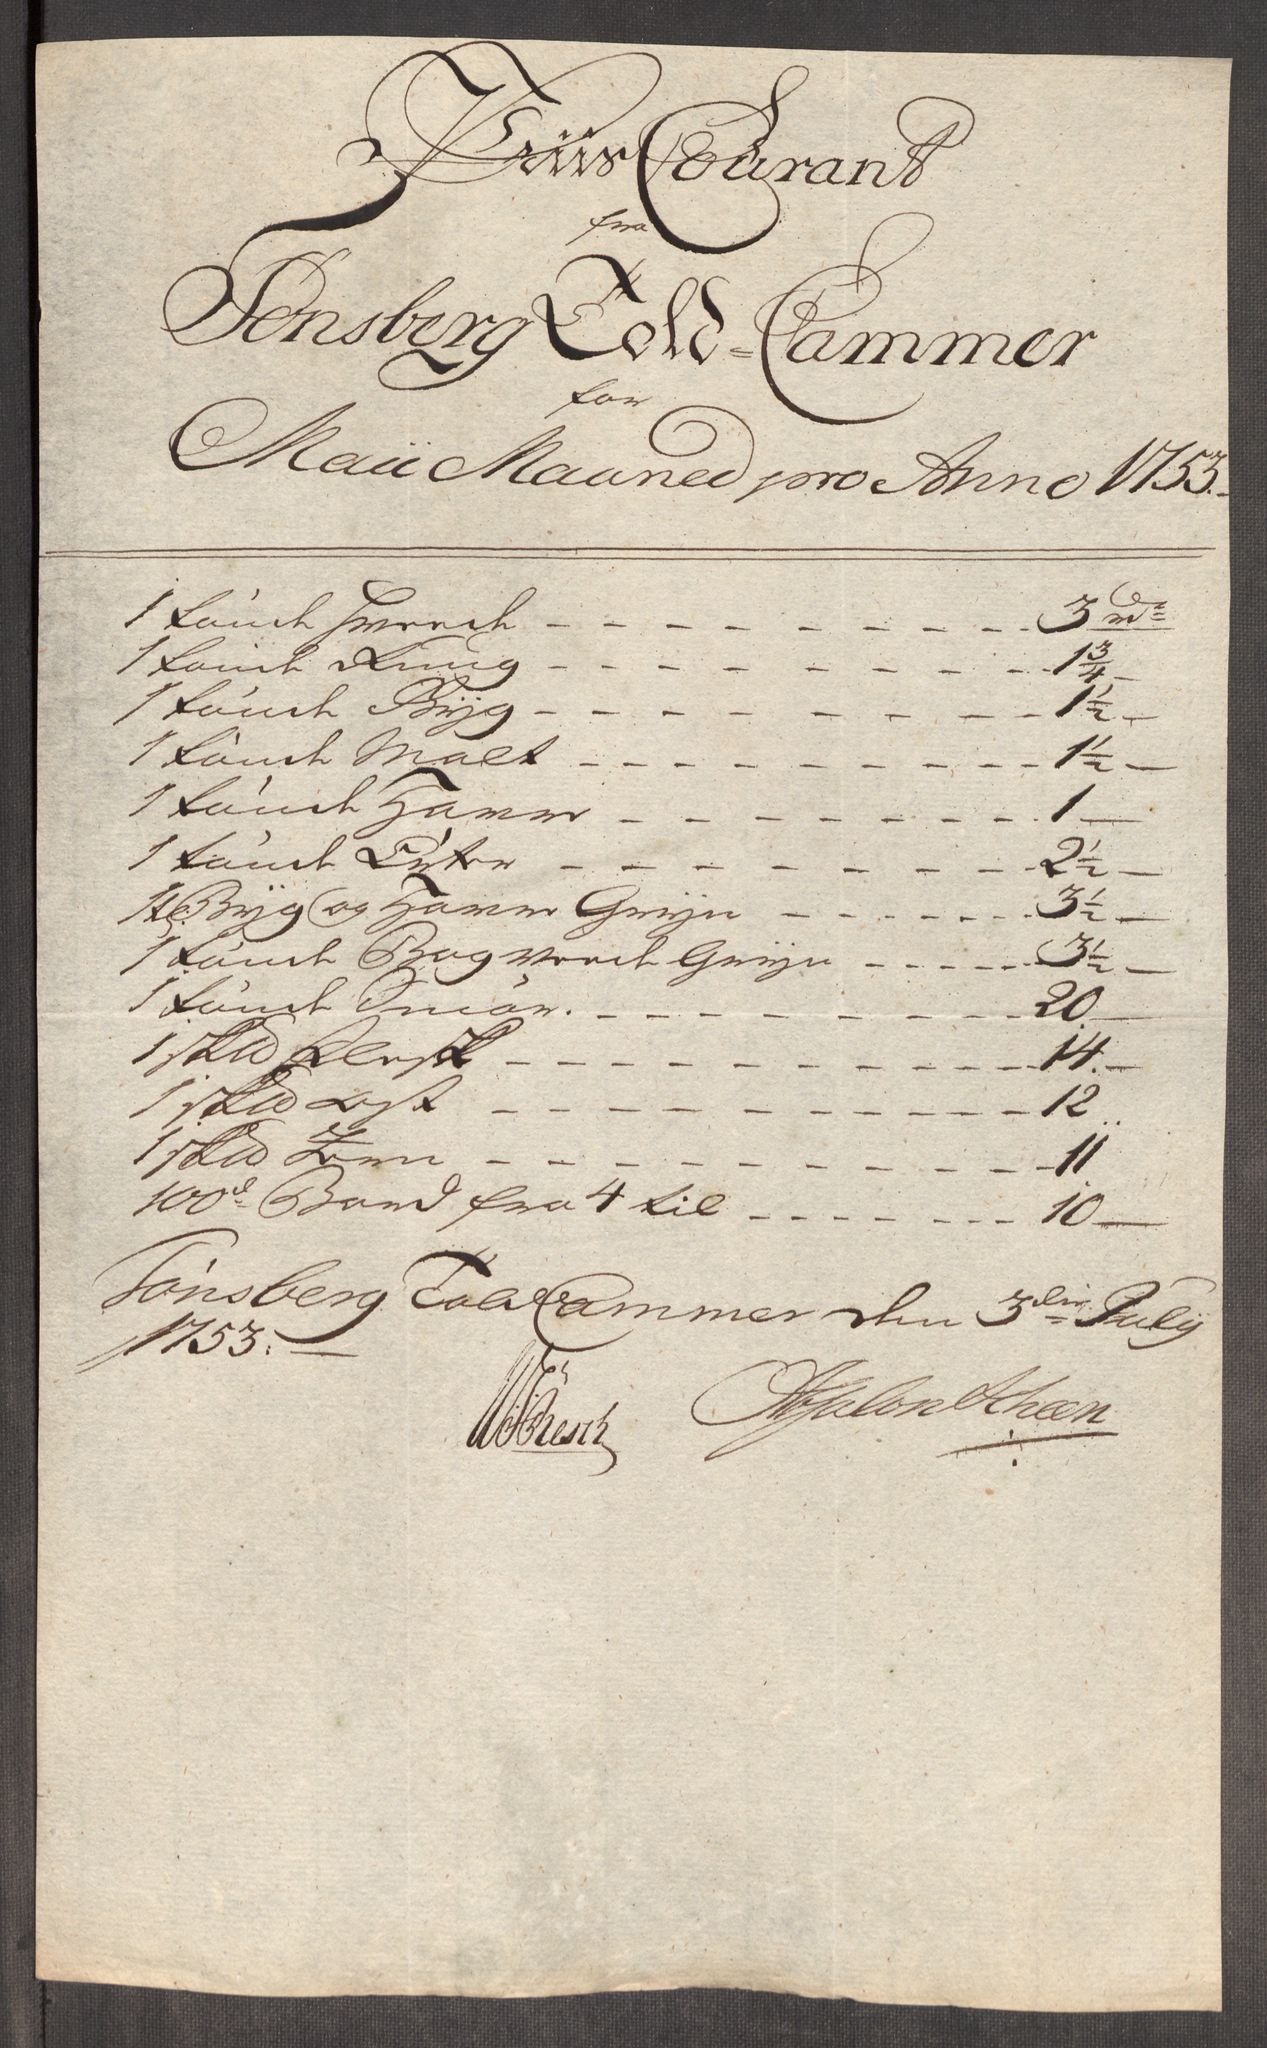 Priis Courant
fra
Tønsberg Told-Cammer
for
Maii Maaned pro Anno 1753.
1 tønde Hvede - - - 3 rd
1 tønde Rug - - - 1 3/4 -
1 tønde Byg - - - 1 1/2 -
1 tønde Malt - - - 1 1/2 -
1 tønde Havre - - - 1 -
1 tønde Erter - - - 2 1/2 -
1 Byg og Havre Gryn - - - 3 1/2 -
1 tønde Bogvede Gryn - - - 3 1/2 -
1 tønde Smør. - - - 20 -
1 sk℔ Flesk - - - 14. -
1 sk℔ Ost - - - 12
1 sk℔ - - - 11
100d Bord fra 4 til - - - 10 -
Tønsberg Told Cammer den 3die July
1753.
Absalon